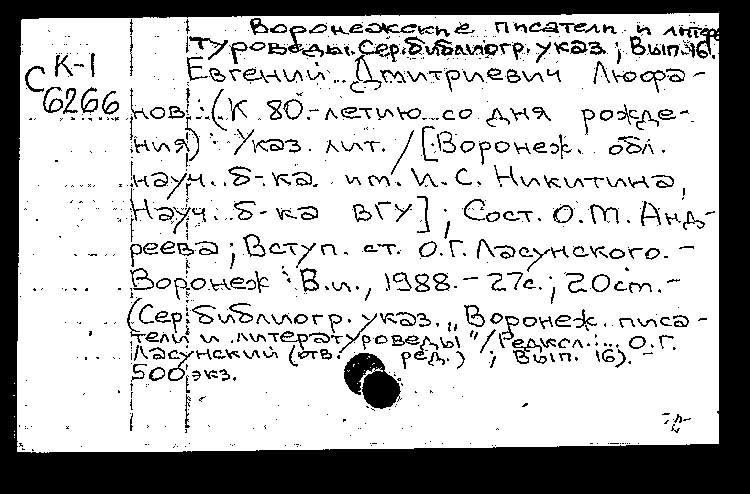 Воронежские писатели и литера
туроведы. Сер. библиогр. указ.; Вып. 16.
К-1
С 6266
Евгений Дмитриевич Люфа-
нов : (К 80-летию со дня рожде-
ния) : Указ. лит. / [Воронеж. обл.
науч. б-ка им. И. С. Никитина,
Науч. б-ка ВГУ] ; Сост. О. М. Анд-
реева ; Вступ. ст. О. Г. Ласунского. -
Воронеж : Б. и., 1988. - 27с. ; 20см. -
(Сер. библиогр. указ. „Воронеж. писа-
тели и литературоведы" / Редкол.: ... О. Г.
Ласунский (отв. ред.) ; Вып. 16). -
500 экз.